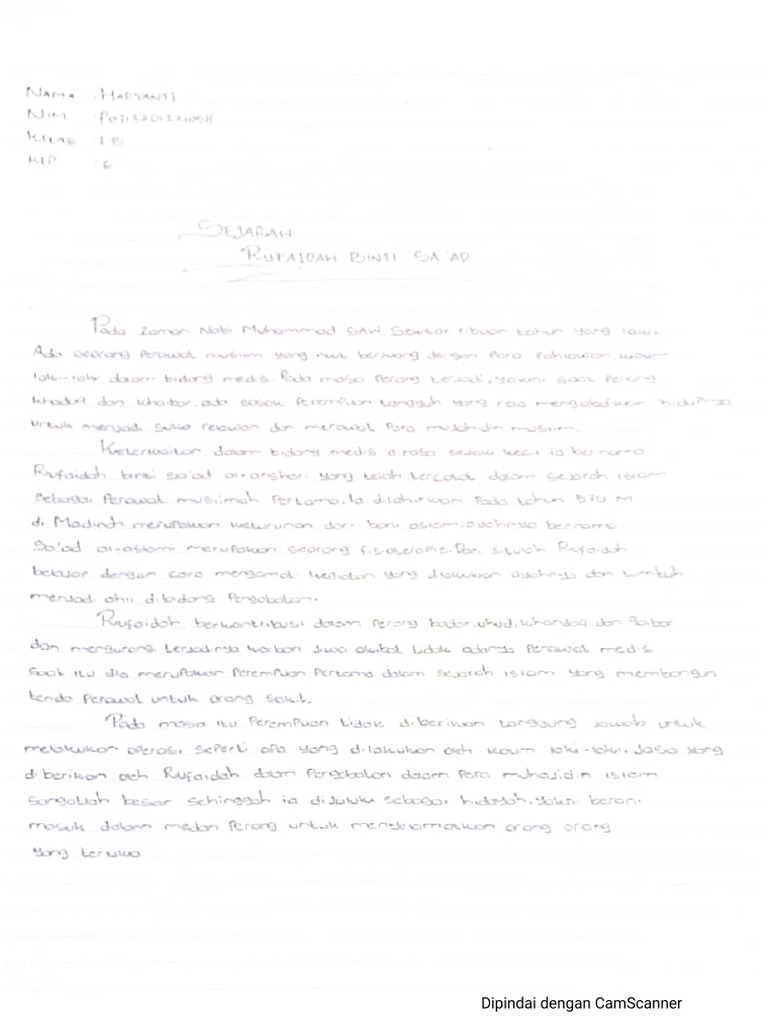 NAMA : HARYANTI
NIM :
KELAS : 1.B
KLP : 6
SEJARAH
RUFAIDAH BINTI SA'AD
Pada zaman Nabi Muhammad SAW. Sekitar ribuan tahun yang lalu.
Ada seorang Perawat muslim yang ikut berjuang dengan Para Pahlawan kaum
laki-laki dalam bidang medis. Pada masa Perang terjadi, yakni saat Perang
khandaq dan khaibar, ada sosok Perempuan tangguh yang rela mengabdikan hidupnya
untuk menjadi suka relawan dan merawat Para mujahidin muslim.
Keterkaitan dalam bidang medis dirasa sejak kecil ia bernama
Rufaidah binti sa'ad al-anshari yang telah tercatat dalam sejarah islam
sebagai Perawat muslimah Pertama. Ia dilahirkan Pada tahun 570 M
di Madinah merupakan keturunan dari bani aslam, ayahnya bernama
Sa'ad al-aslami merupakan seorang fisioterapis. Dari situlah Rufaidah
belajar dengan cara mengamati kegiatan yang dilakukan ayahnya dan tumbuh
menjadi ahli dibidang Pengobatan.
Rufaidah berkontribusi dalam Perang badar, uhud, khandaq dan
dan mengurangi terjadinya korban jiwa akibat tidak adanya Perawat medis
Saat itu dia merupakan Perempuan Pertama dalam sejarah islam yang membangun
tenda Perawat untuk orang sakit.
Pada masa itu Perempuan tidak diberikan tanggung jawab untuk
melakukan operasi, seperti apa yang dilakukan oleh kaum laki-laki. Jasa yang
diberikan oleh Rufaidah dalam Pengobatan dalam Para muhajidin islam
sangatlah besar sehingga ia dijuluki sebagai yakni berani
masuk dalam medan Perang untuk menyelamatkan orang orang
yang terluka
Dipindai dengan CamScanner